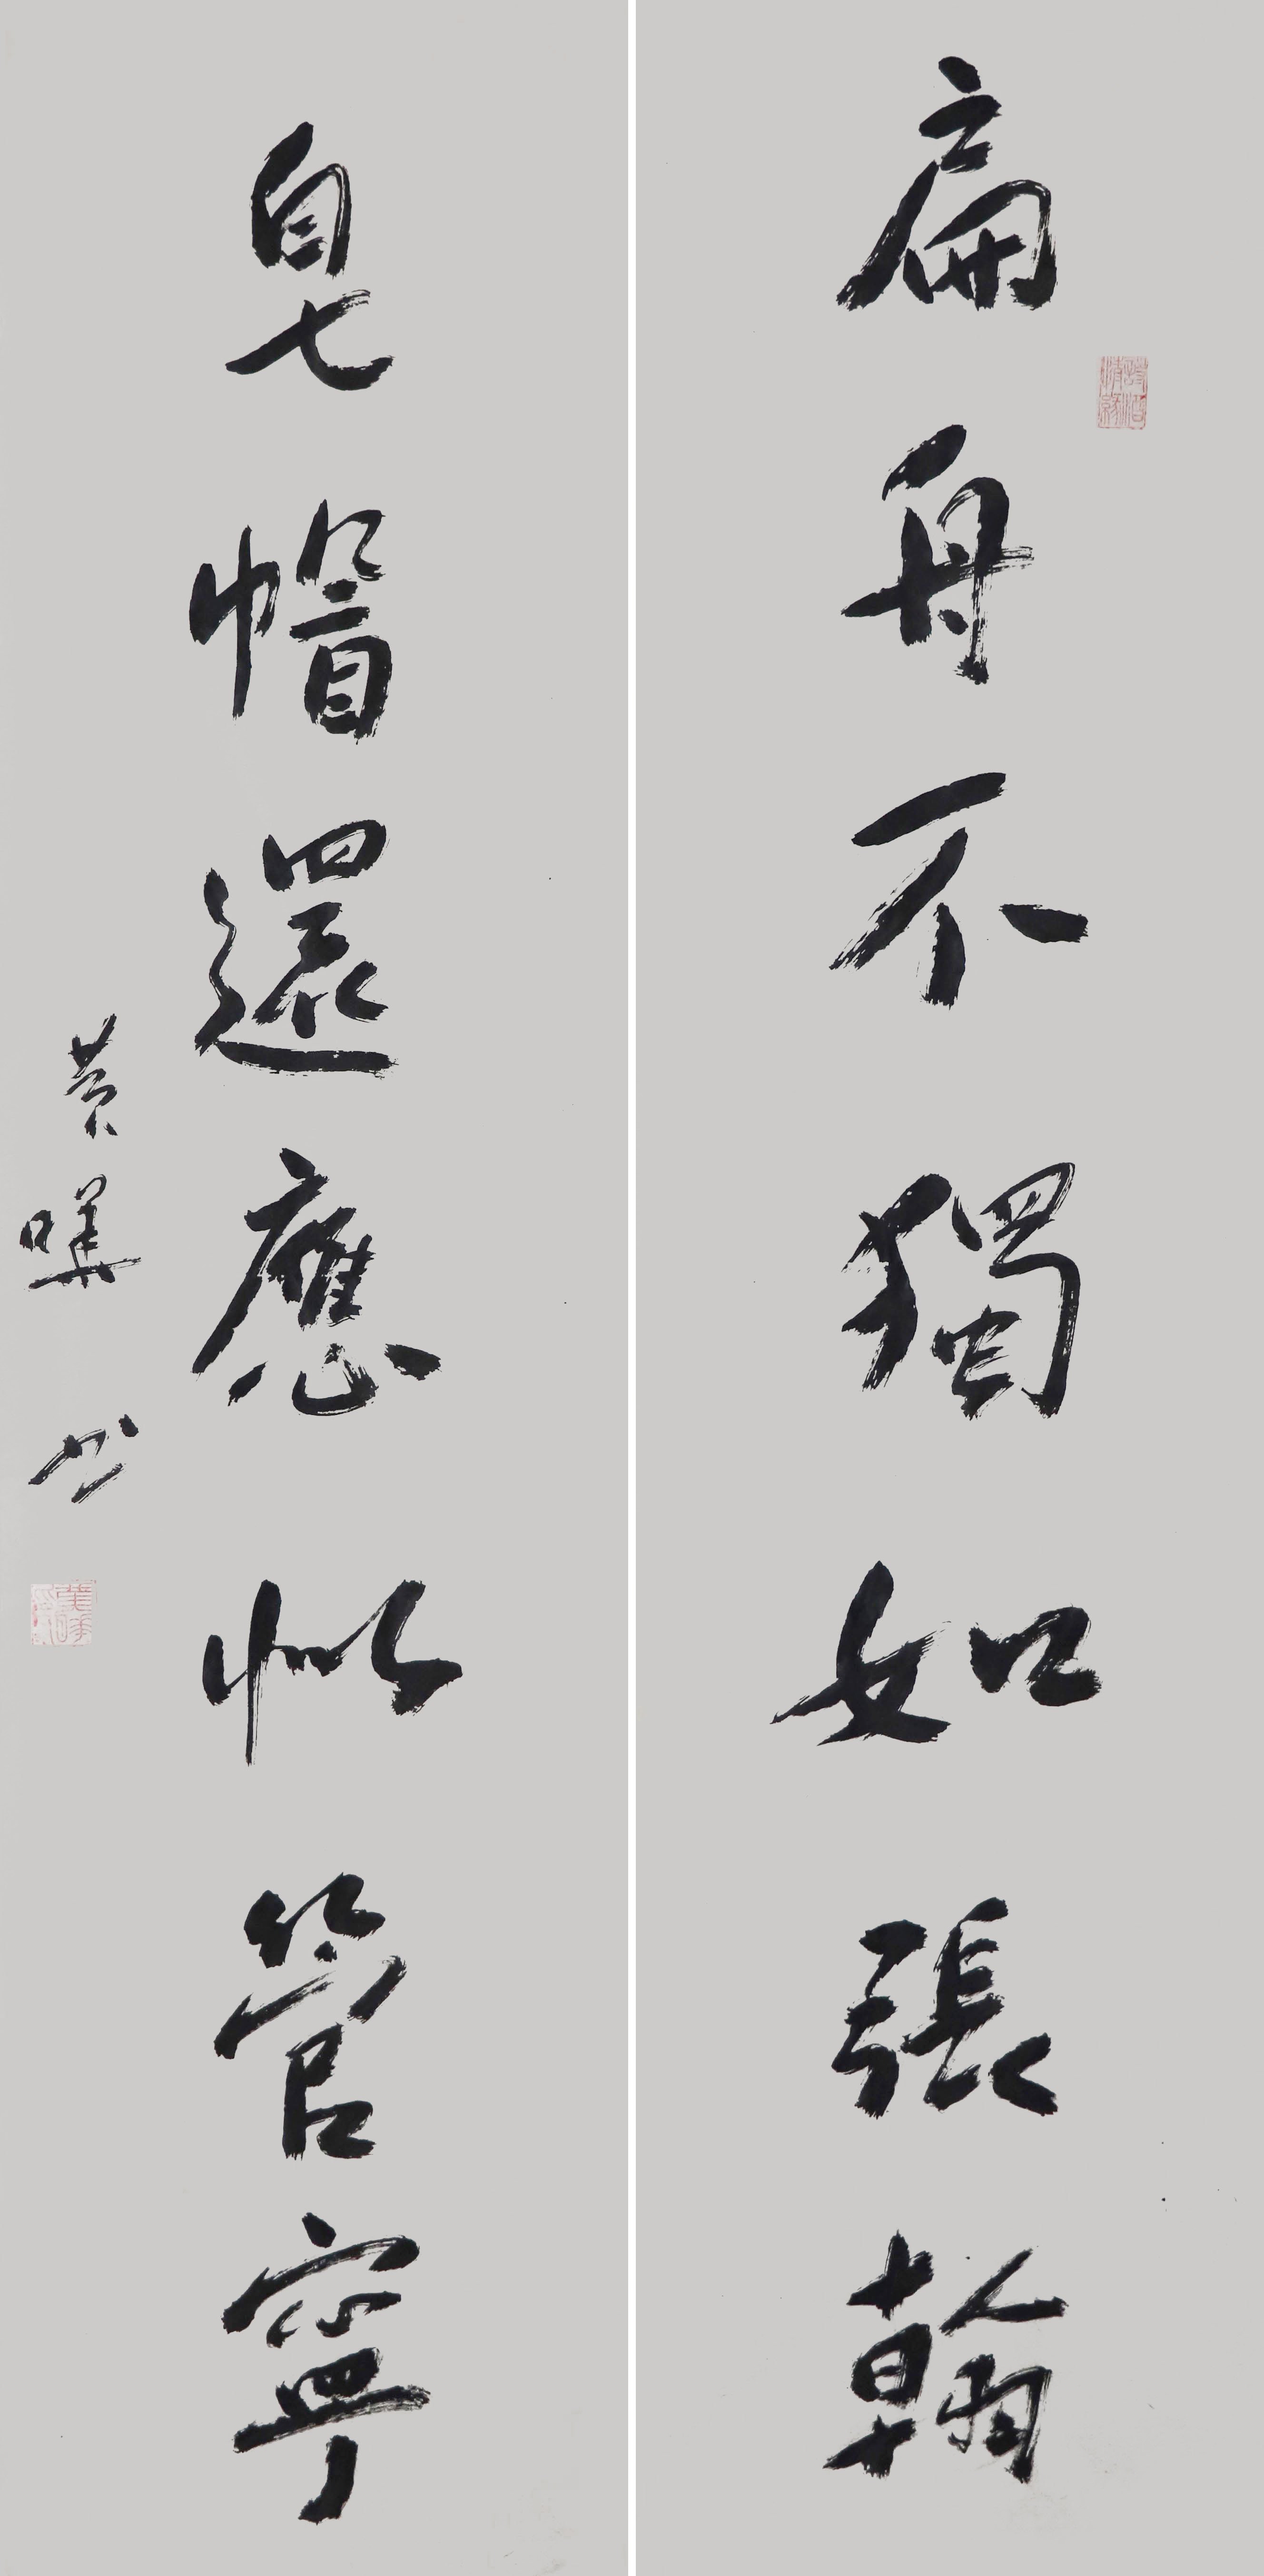 扁舟不獨如張翰
皂帽還應似管寧
黄暉书